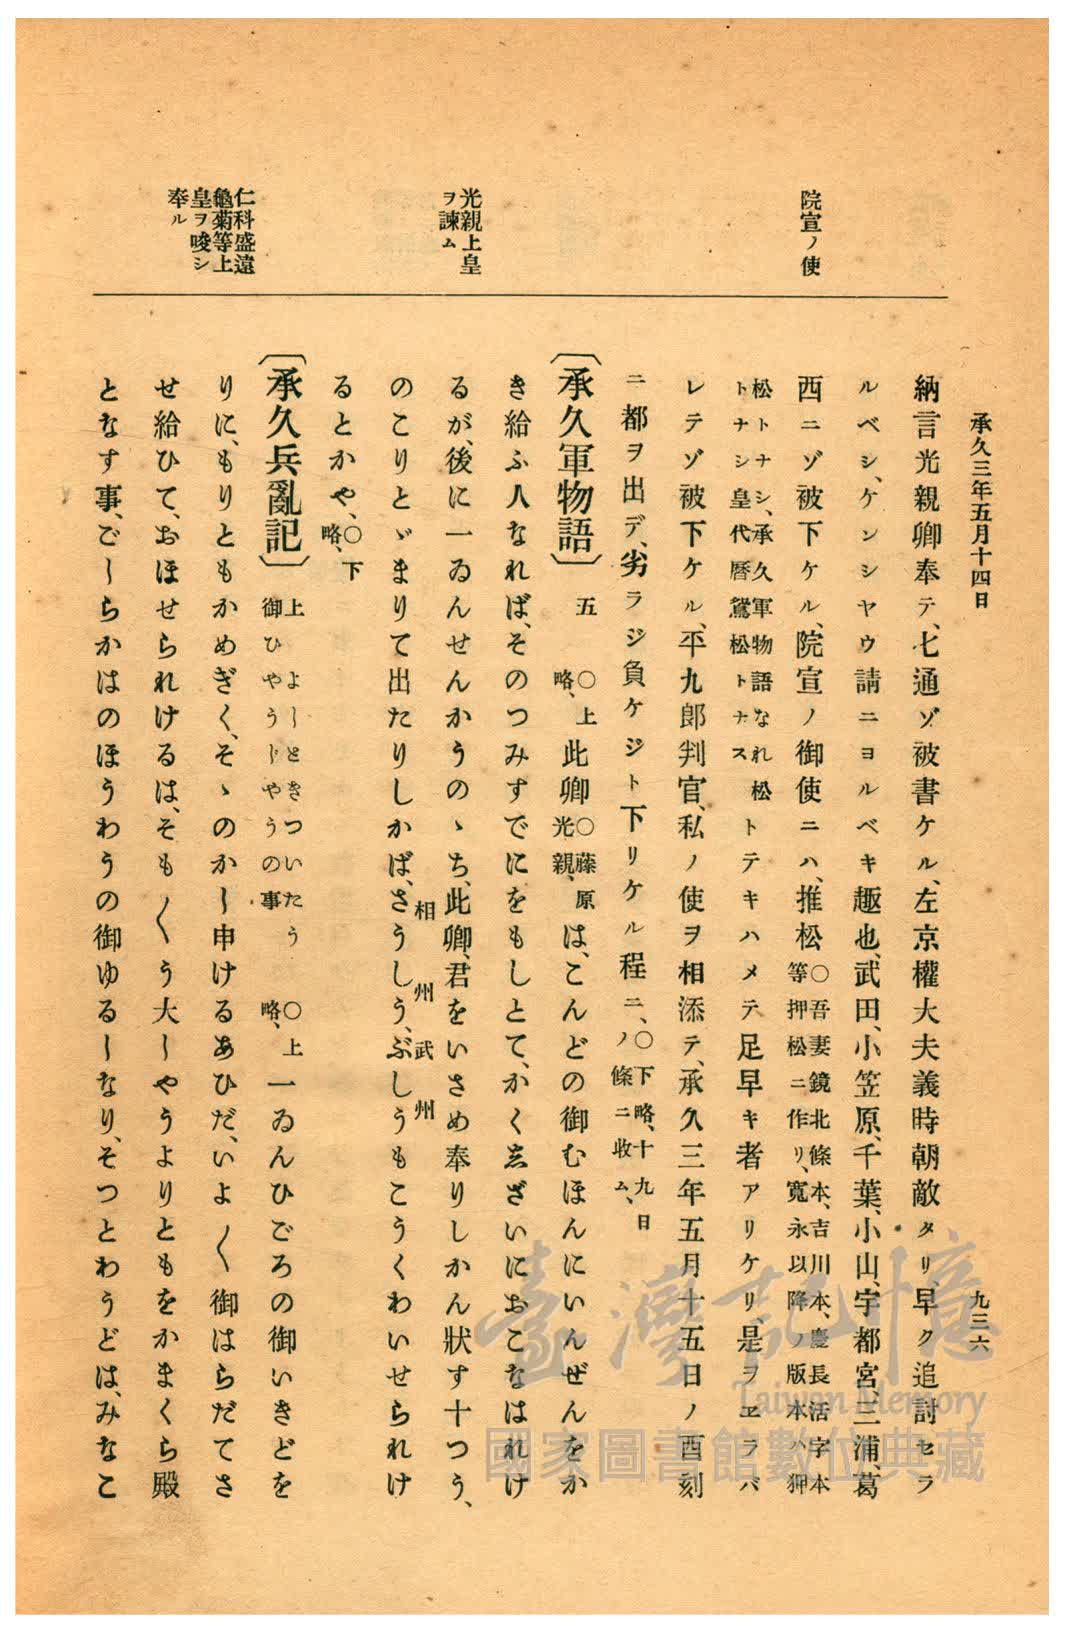 承久三年五月十四日
九三六
院宣ノ使
光親上皇
ヲ諫ム
仁科盛遠
龜菊等上
皇ヲ唆シ
奉ル
納言光親卿奉テ、七通ゾ被書ケル、左京權大夫義時朝敵タリ、早ク追討セラ
ルベシ、ケンシヤウ請ニヨルベキ趣也、武田、小笠原、千葉、小山、宇都宮、三浦、葛
西ニゾ被下ケル、院宣ノ御使ニハ、推松〇吾妻鏡北條本、吉川本、慶長活字本
等押松ニ作リ、寬永以降ノ版本ハ狎
松トナシ、承久軍物語なれ松
トナシ皇代曆鴐松トナス
トテキハメテ足早キ者アリケリ、是ヲヱラバ
レテゾ被下ケル、平九郎判官、私ノ使ヲ相添テ、承久三年五月十五日ノ酉刻
ニ都ヲ出デ、劣ラジ負ケジト下リケル程ニ、〇下略、十九日
ノ條ニ收ム、
〔承久軍物語〕 五 〇上
略、此卿〇藤原
光親、は、こんどの御むほんにいんぜんをか
き給ふ人なれば、そのつみすでにをもしとて、かく志ざいにおこなはれけ
るが、後に一ゐんせんかうのゝち、此卿、君をいさめ奉りしかん狀す十つう、
のこりとゞまりて出たりしかば、さうしう、ぶしうもこうくわいせられけ
相州 武州
るとかや、〇下
略、
〔承久兵亂記〕 上 よーときついたう
御ひやうぢやうの事 〇上
略、一ゐんひごろの御いきどを
りに、もりともかめぎく、そゝのかー申けるあひだ、いよ〱御はらだてさ
せ給ひて、おほせられけるは、そも〱う大ーやうよりともをかまくら殿
となす事、ごーらかはのほうわうの御ゆるーなり、そつとわうどは、みなこ
臺灣記憶
Taiwan Memory
國家圖書館數位典藏